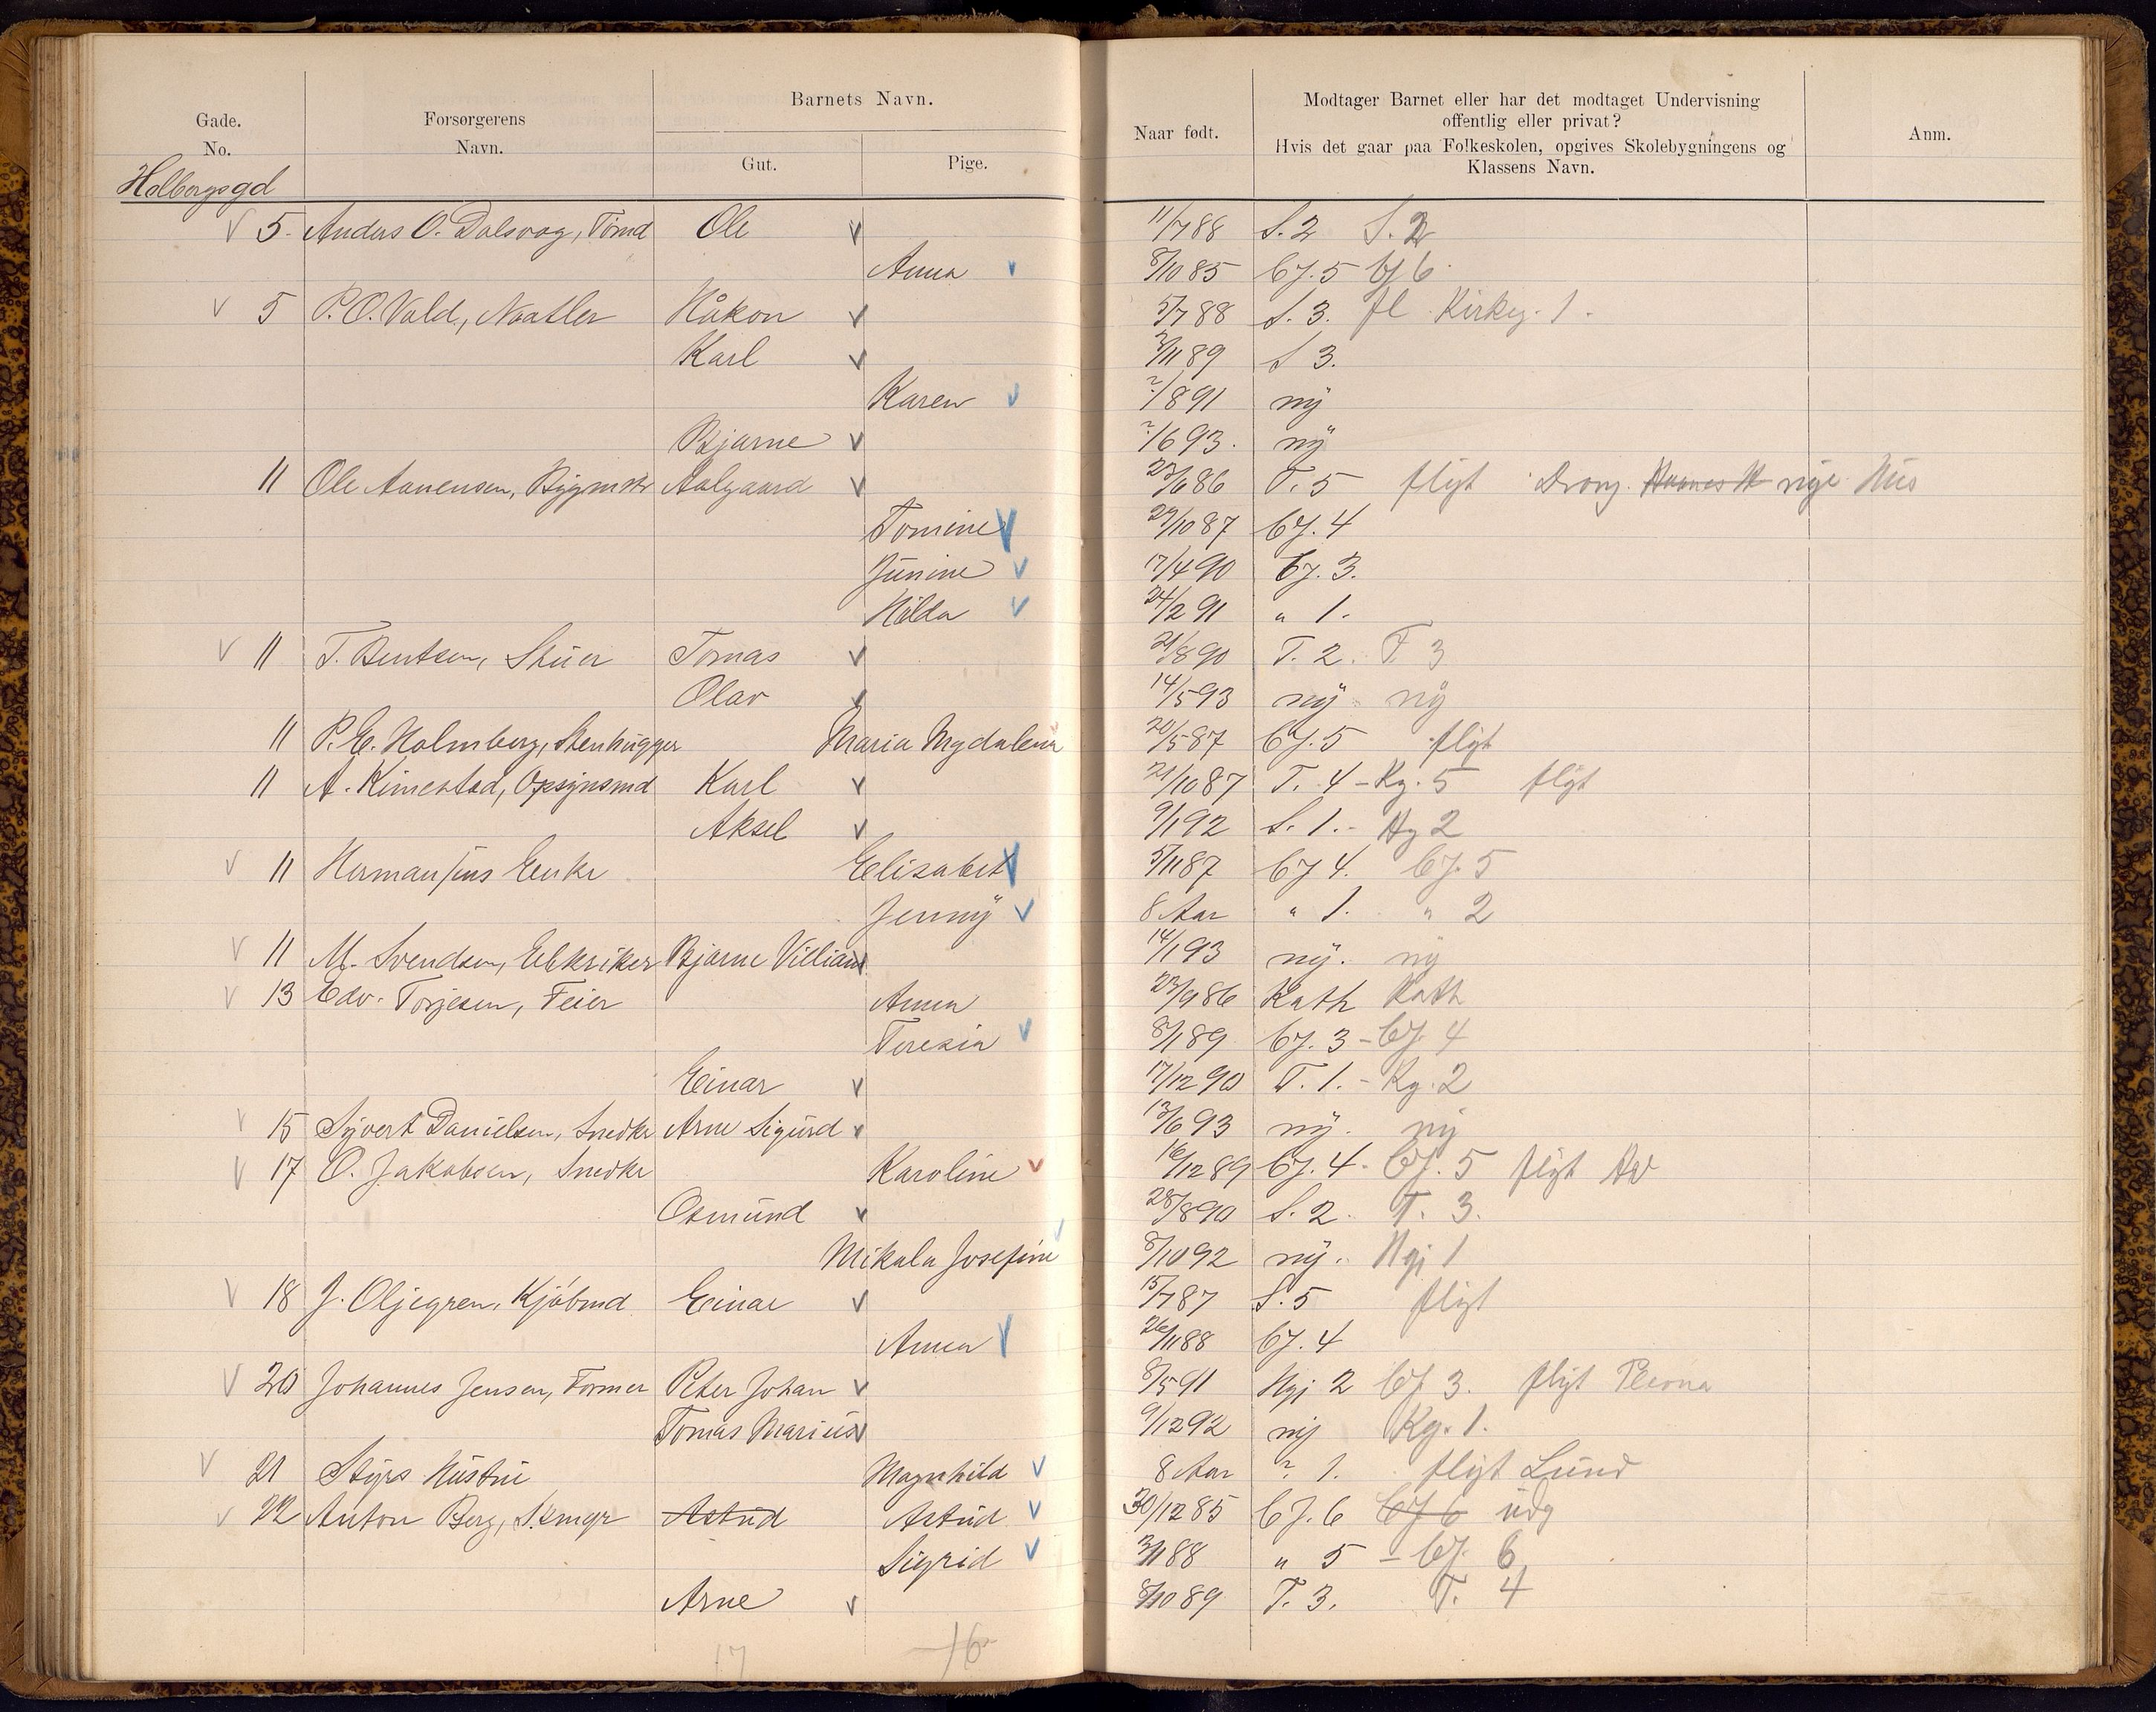 Gade.
No.
Forsørgerens
Navn.
Barnets Navn.
Gut.
Pige.
Naar født.
Modtager Barnet eller har det modtaget Undervisning
offentlig eller privat?
Hvis det gaar paa Folkeskolen, opgives Skolebygningens og
Klassens Navn.
Anm.
Holbergsgd
5. Anders O. Dalsvag, Tømd Ole 11/7 88 S. 2 S. 2
Anna 8/10 85 Cj. 5 Cj 6
5 P. O. Vold, Naatler Håkon 5/7 88 S. 3. fl Kirkeg. 1.
Karl 3/11 89 S 3.
Karen ?/8 91 ny
Bjarne ?/6 93. ny
11 Ole Aanensen, Bygmstr Aalgaard 23/6 86 T. 5 flyt Drong. nye Hus
Tomine 29/10 87 Cj. 4
Junine 17/4 90 Cj. 3.
Hilda 24/2 91 " 1.
11 T. Bentsen, Stuer Tomas 21/8 90 T. 2. T. 3
Olav 14/5 93 ny ny
11 P. E. Holmberg, Stenhugger Maria Mgdalena 20/5 87 Cj. 5 flyt
11 A. Kimestad, Opsynsmd Karl 21/10 87 T. 4 - Kg. 5 flyt
Aksel 9/1 92 S. 1. - Kg 2
11 Hermansens Enke Elisabet 5/11 87 Cj 4. Cj. 5
Jenny 8 Aar " 1. " 2
11 M. Svendsen, Elektriker Bjarne Villiam 14/1 93 ny. ny
13 Edv. Torjesen, Feier Anna 23/9 86 Kath Kath
Teresia 8/1 89 Cj. 3 - Cj. 4
Einar 17/12 90 T. 1. - Kg. 2
15 Syvert Danielsen, Snedkr Arne Sigurd 13/6 93 ny. ny
17 O. Jakobsen, Snedkr Karoline 16/12 89 Cj. 4 - Cj. 5 flyt
Osmund 28/8 90 S. 2. T. 3.
Mikala Josefine 8/10 92 ny. Ngj 1
18 J. Oljegren, Kjøbmd Einar 15/7 87 S. 5 flyt
Anna 26/11 88 Cj. 4
20 Johannes Jensen, Former Peter Johan 8/5 91 Ngj 2 Cj 3. flyt
Tomas Marius 9/12 92 ny Kg. 1.
21 Styrs Hustru Magnhild 8 Aar ? 1. flyt Lund
22 Anton Berg, Skmgr Astrid Astrid 30/12 85 Cj. 6 Cj 6 udg
Sigrid 3/1 88 " 5 - Cj. 6
Arne 8/10 89 T. 3. T. 4
17 16